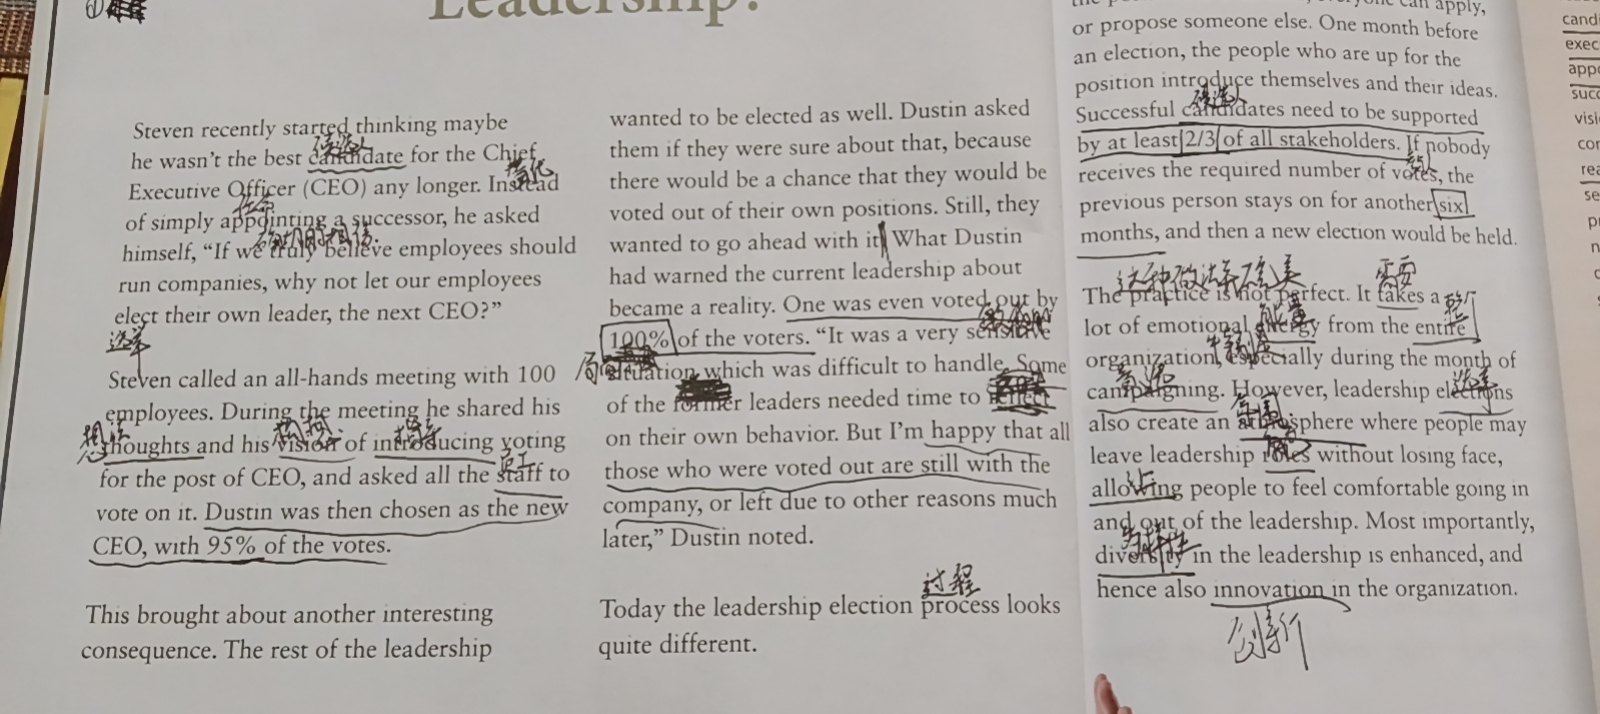 Leadership?
Steven recently started thinking maybe
候选人
he wasn't the best candidate for the Chief
替代
Executive Officer (CEO) any longer. Instead
任命
of simply appointing a successor, he asked
himself, "If we truly believe employees should
run companies, why not let our employees
elect their own leader, the next CEO?"
选举
Steven called an all-hands meeting with 100
employees. During the meeting he shared his
想法
thoughts and his vision of introducing voting
员工
for the post of CEO, and asked all the staff to
vote on it. Dustin was then chosen as the new
CEO, with 95% of the votes.
This brought about another interesting
consequence. The rest of the leadership
wanted to be elected as well. Dustin asked
them if they were sure about that, because
there would be a chance that they would be
voted out of their own positions. Still, they
wanted to go ahead with it. What Dustin
had warned the current leadership about
became a reality. One was even voted out by
敏感的
100% of the voters. "It was a very sensitive
situation which was difficult to handle. Some
of the former leaders needed time to reflect
on their own behavior. But I'm happy that all
those who were voted out are still with the
company, or left due to other reasons much
later," Dustin noted.
过程
Today the leadership election process looks
quite different.
apply,
or propose someone else. One month before
an election, the people who are up for the
position introduce themselves and their ideas.
候选人
Successful candidates need to be supported
by at least 2/3 of all stakeholders. If nobody
receives the required number of votes, the
previous person stays on for another six
months, and then a new election would be held.
这种做法不完美 需要
The practice is not perfect. It takes a
能量 整个
lot of emotional energy from the entire
organization, especially during the month of
竞选 选举
campaigning. However, leadership elections
氛围
also create an atmosphere where people may
leave leadership roles without losing face,
allowing people to feel comfortable going in
and out of the leadership. Most importantly,
多样性
diversity in the leadership is enhanced, and
hence also innovation in the organization.
创新
cand
exec
appo
succ
visi
con
rea
se